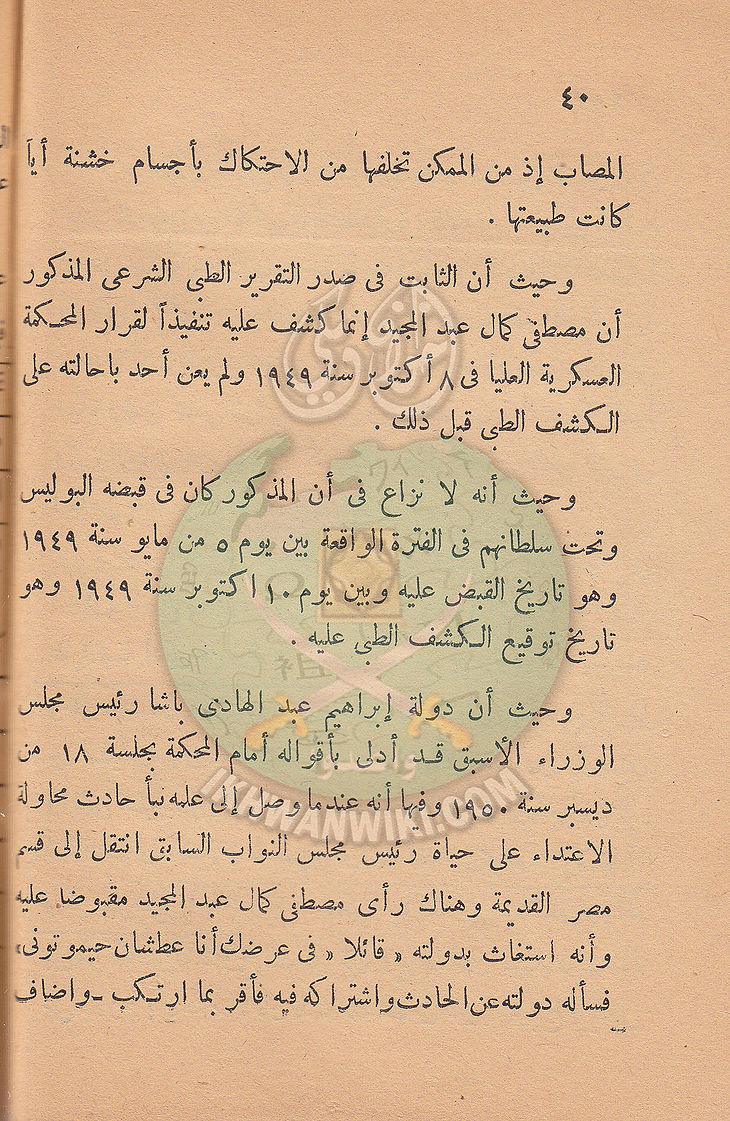 ٤٠
المصاب إذ من الممكن تخلفها من الاحتكاك بأجسام خشنة أياً
كانت طبيعتها .
وحيث أن الثابت فى صدر التقرير الطبى الشرعى المذكور
أن مصطفى كمال عبد المجيد إنما كشف عليه تنفيذاً لقرار المحكمة
العسكرية العليا فى ٨ أكتوبر سنة ١٩٤٩ ولم يعن أحد باحالته على
الكشف الطبى قبل ذلك .
وحيث أنه لا نزاع فى أن المذكور كان فى قبضه البوليس
وتحت سلطانهم فى الفترة الواقعة بين يوم ٥ من مايو سنة ١٩٤٩
وهو تاريخ القبض عليه وبين يوم ١٠ اكتوبر سنة ١٩٤٩ وهو
تاريخ توقيع الكشف الطبى عليه .
وحيث أن دولة إبراهيم عبد الهادى باشا رئيس مجلس
الوزراء الأسبق قد أدلى بأقواله أمام المحكمة بجلسة ١٨ من
ديسبر سنة ١٩٥٠ وفيها أنه عندما وصل إلى علمه نبأ حادث محاولة
الاعتداء على حياة رئيس مجلس النواب السابق انتقل إلى قسم
مصر القديمة وهناك رأى مصطفى كمال عبد المجيد مقبوضا عليه
وأنه استغاث بدولته « قائلا « فى عرضك أنا عطشان حيموتونى»
فسأله دولته عن الحادث واشتراكه فيه فأقر بما ارتكب - واضاف
IKHWANWIKI.COM